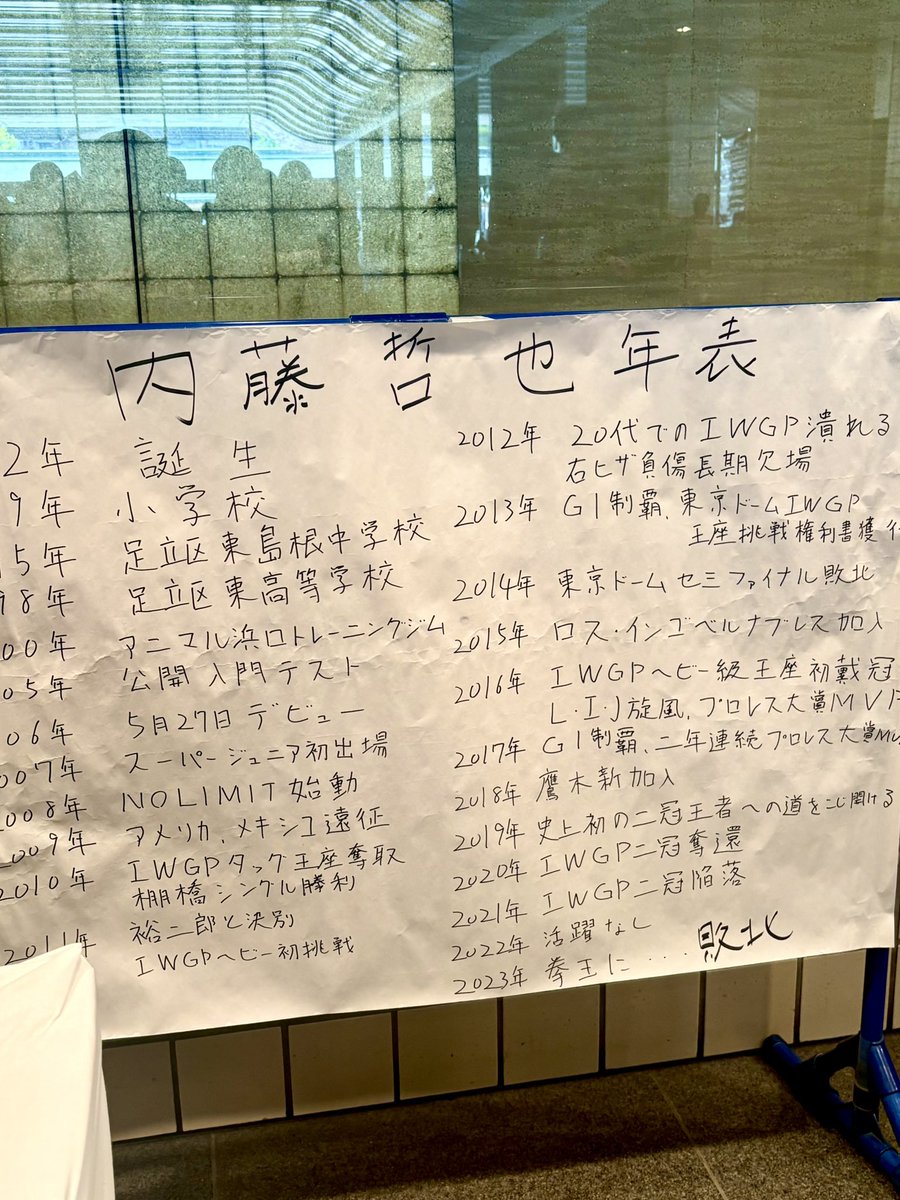 内藤哲也年表
2年 誕生
9年 小学校
5年 足立区東島根中学校
98年 足立区東高等学校
00年 アニマル浜口トレーニングジム
05年 公開入門テスト
06年 5月27日デビュー
007年 スーパージュニア初出場
2008年 NOLIMIT始動
2009年 アメリカ、メキシコ遠征
2010年 IWGPタッグ王座奪取
棚橋シングル勝利
2011年 裕二郎と決別
IWGPヘビー初挑戦
2012年 20代でのIWGP潰れる
右ヒザ負傷長期欠場
2013年 G1制覇、東京ドームIWGP
王座挑戦権利書獲得
2014年 東京ドームセミファイナル敗北
2015年 ロス・インゴベルナブレス加入
2016年 IWGPヘビー級王座初戴冠
L・I・J旋風、プロレス大賞MVP
2017年 G1制覇、二年連続プロレス大賞MV
2018年 鷹木新加入
2019年 史上初の二冠王者への道をこじ開ける
2020年 IWGP二冠奪還
2021年 IWGP二冠陥落
2022年 活躍なし
2023年 拳王に・・・・敗北